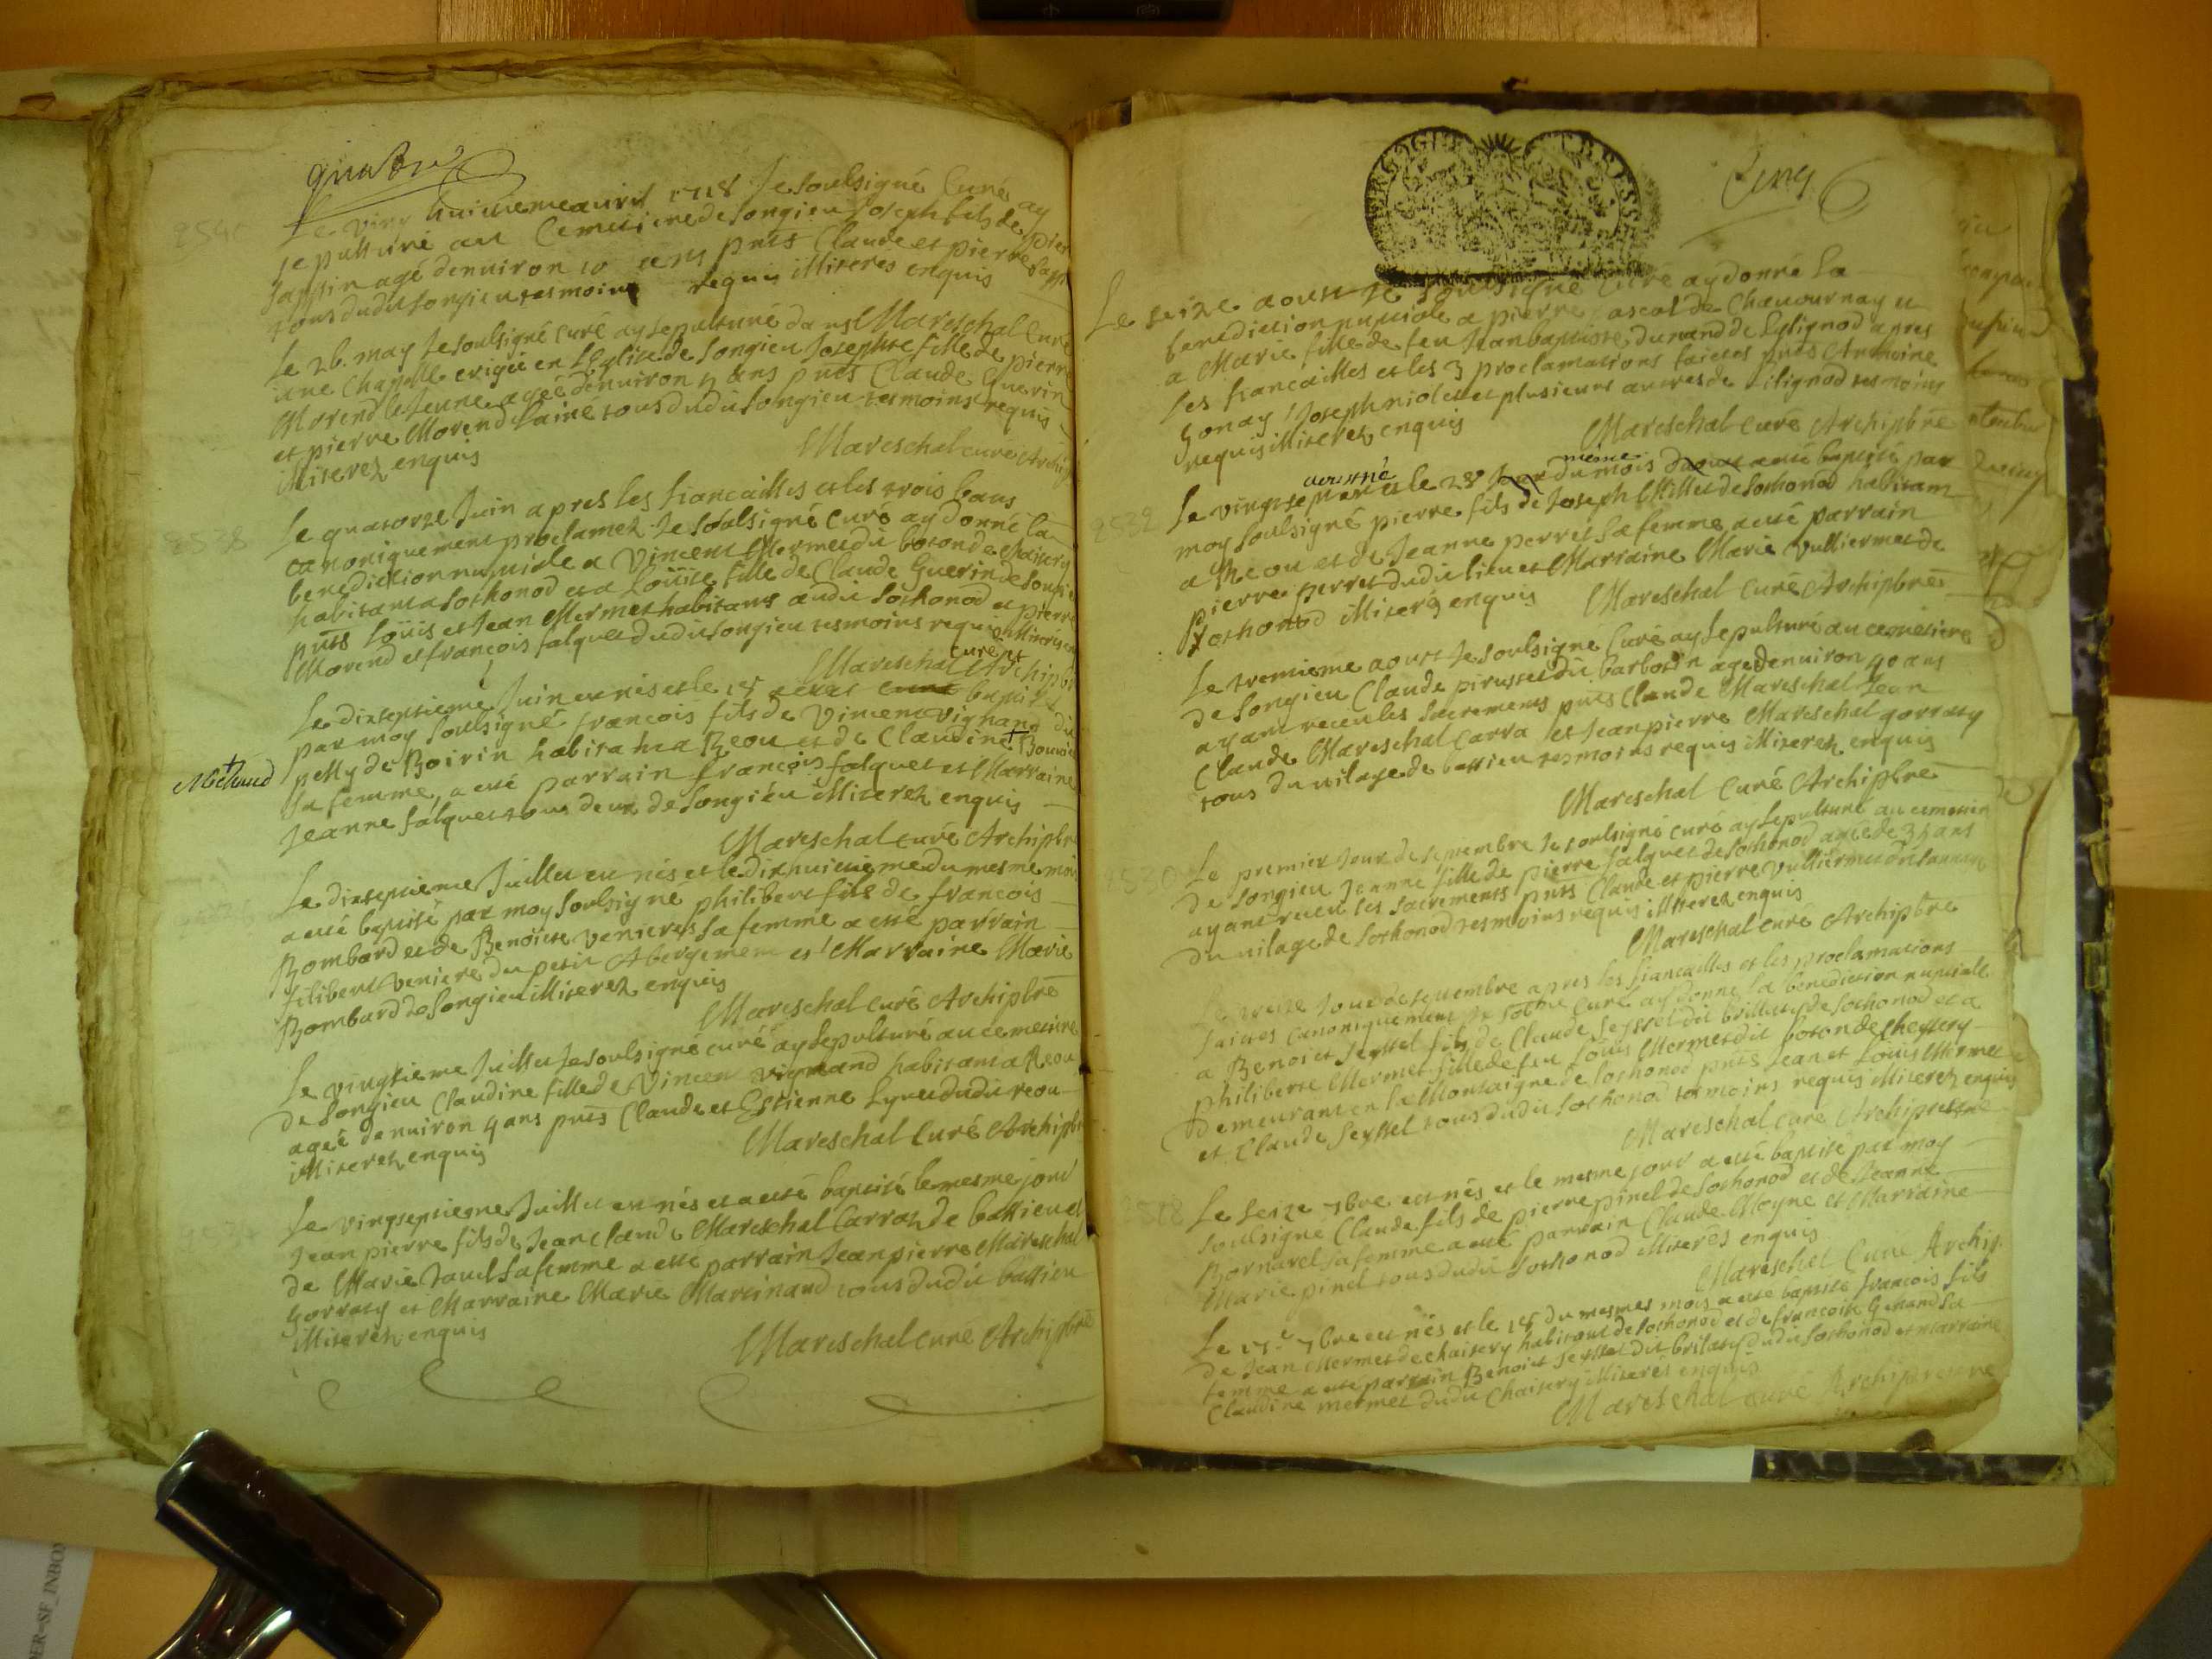 quatre
Le vingt huitieme avril 1718 Je soulsigné Curé ay
sepulturé au Cemetiere de songieu Joseph fils de pier
sappin agé denviron 10 ans pnts Claude et pierre sapp
tous dudit songieu tesmoins requis illiteres enquis
Mareschal Curé
Le 26. may Je soulsigné curé ay sepulturé dans
une Chapelle erigée en l'Eglise de songieu Josephte fille de pierre
Morend le Jeune agée denviron 5 ans pnts Claude Guerin
et pierre Morend lainé tous dudit songieu tesmoins requis
illiterez enquis
Mareschal curé Archip
Le quatorze Juin apres les fiancailles et les trois bans
canoniquement proclamez Je soulsigné curé ay donné la
benediction nuptiale a Vincent Mermet du boton de Chaisery
habitant a sothonod et a Louise fille de Claude Guerin de songie
pnts Louis et Jean Mermet habitans audit sothonod et pierre
Morend et francois falquet dudit songieu tesmoins requis illiteres en
Mareschal curé et Archipb
Le dixseptieme Juin est nés et le 18 a esté baptisé
par moy soulsigné francois fils de Vincent vignand du
petty de Boirin habitant a Reou et de Claudine + Bouvier
+ Michaud
sa femme, a esté parrain francois falquet et Marraine
Jeanne falquet tous deux de songieu illiterez enquis
Mareschal curé Archipbr
Le dixseptieme Juillet est nés et le dixhuitieme du mesme mois
a esté baptisé par moy soulsigné philibert fils de francois
Bombard et de Benoiste veniere sa femme a esté parrain
filibert veniere du petit Abergement et Marraine Marie
Bombard de songieu illiterez enquis
Mareschal curé Archipbre
Le vingtieme Juillet Je soulsigné curé ay sepulturé au cemetiere
de songieu Claudine fille de Vincent vignand habitant a Reou
agée denviron 4 ans pnts Claude et Estienne Lyvet dudit reou
illiterez enquis
Mareschal Curé Archipbr
Le vingseptieme Juillet est nés et a esté baptisé le mesme jour
Jean pierre fils de Jean claude Mareschal Carraz de bassieu et
de Marie Javel sa femme a esté parrain Jean pierre Mareschal
gorraty et Marraine Marie Martinand tous dudit bassieu
illiterez enquis
Mareschal curé Archipbre
Cinq
Le seize aoust Je soulsigné Curé ay donné la
benediction nuptiale a pierre pascal de Chavournay et
a Marie fille de feu Jean baptiste Durand de Lilignod apres
les fiancailles et les 3 proclamations faictes pnts Anthoine
gonay Joseph niolet et plusieurs autres de Lilignod tesmoins
requis illiterez enquis
Mareschal curé Archipbre
2532
Le vingtsept aoust est né et le 28 du mesme mois a esté baptisé par
moy soulsigné pierre fils de Joseph Millet de sothonod habitant
a Reou et de Jeanne perret sa femme a esté parrain
pierre perret dudit lieu et Marraine Marie vulliermet de
sothonod illiterés enquis
Mareschal Curé Archipbre
Le trentieme aoust Je soulsigné Curé ay sepulturé au cemetiere
de songieu Claude pirusset du barbotin agé denviron 40 ans
ayant receu les sacrements pnts Claude Mareschal Jean
Claude Mareschal Carra et Jean pierre Mareschal gorraty
tous du vilage de bassieu tesmoins requis illiterez enquis
Mareschal Curé Archipbre
2530
Le premier Jour de septembre Je soulsigné curé ay sepulturé au cemetier
de songieu Jeanne fille de pierre falquet de sothonod agée de 35 ans
ayant receu les sacrements pnts Claude et pierre vulliermet
du vilage de sothonod tesmoins requis illiterez enquis
Mareschal curé Archipbre
Le treize Jour de septembre apres les fiancailles et les proclamations
faittes canoniquement Je soubne curé ay donné la benediction nuptiale
a Benoict seyssel fils de Claude seyssel dit brillaty de sothonod et a
philiberte Mermet fille de feu Louis Mermet dit boton de cheysery
demeurant en la Montaigne de sothonod pnts Jean et Louis Mermet
et Claude Seyssel tous dudit sothonod tesmoins requis illiterez enquis
Mareschal Curé Archiprestre
2528
Le seize 7bre est nés et le mesme jour a esté baptisé par moy
soulsigné Claude fils de pierre pinel de sothonod et de Jeanne
Bornarel sa femme a esté parrain Claude Moyne et Marraine
Marie pinel tous dudit sothonod illiterés enquis
Mareschal Curé Archip.
Le 17e 7bre est nés et le 18 du mesmes mois a esté baptisé francois fils
de Jean Mermet de chaisery habitant de sothonod et de francoise Genand sa
femme a esté parrain Benoict seyssel dit brilaty dudit sothonod et marraine
Claudine mermet dudit Chaisery illiterés enquis
Mareschal curé Archiprestre